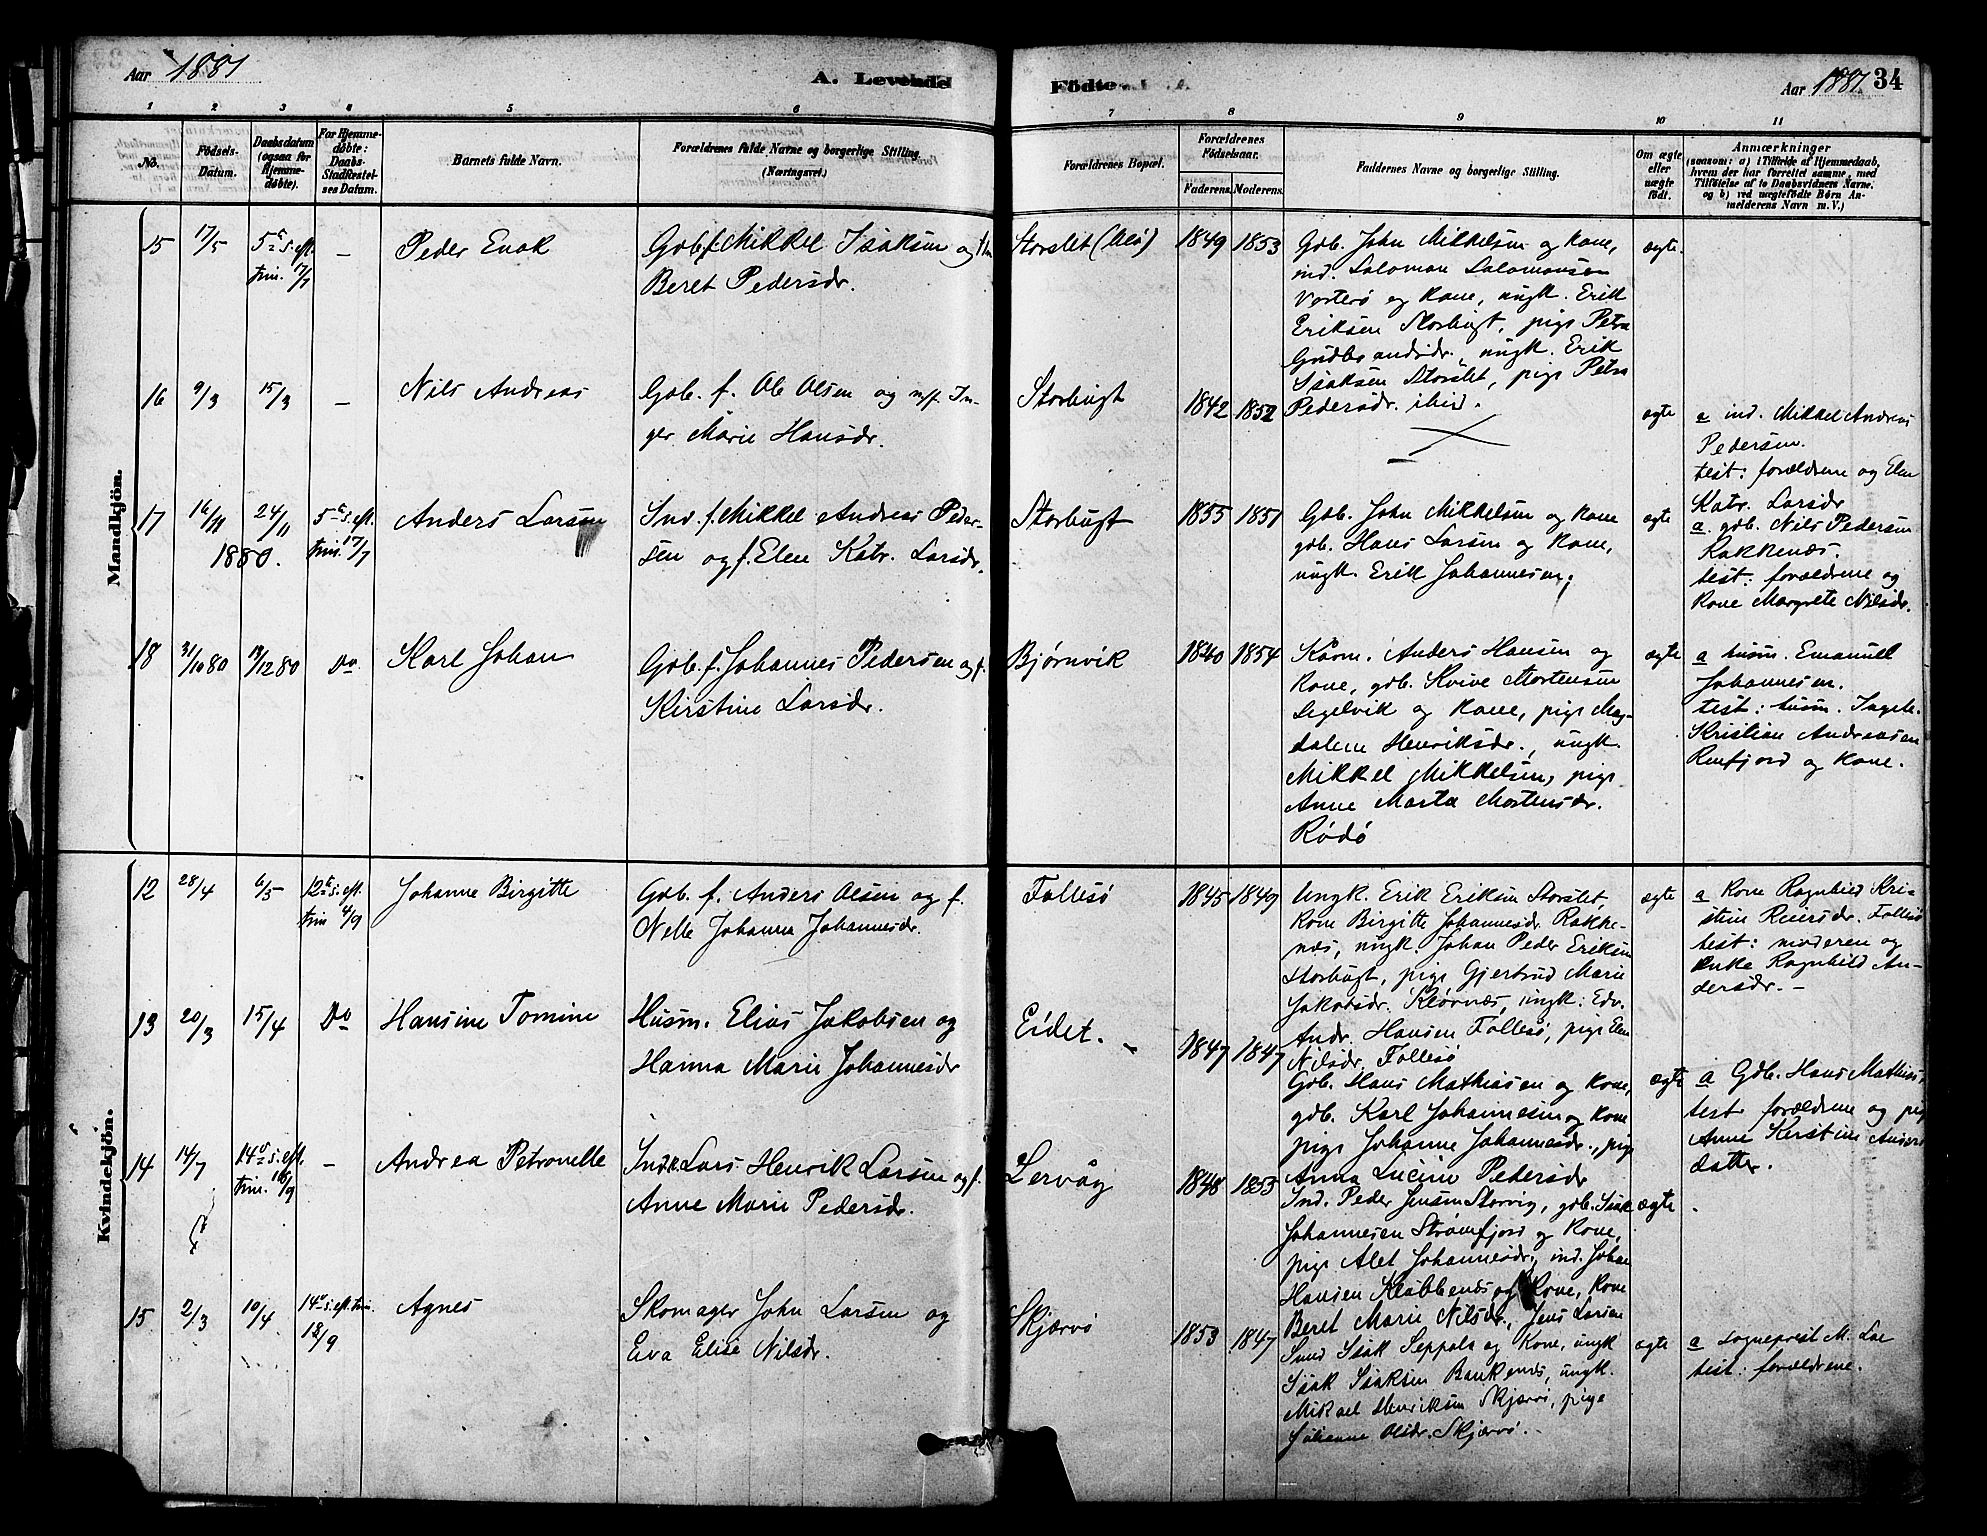 Aar 1881
A. Levende
Fødte.
Aar 1881. 34
1 2 3 4 5 6 7 8 9 10 11
No.
Födsels-
Datum.
Daabsdatum
(ogsaa for
Hjemme-
döbte).
For Hjemme-
döbte:
Daabs-
Stadfæstel-
ses Datum.
Barnets fulde Navn.
Forældrenes fulde Navne og borgerlige Stilling
(Næringsvei.)
Forældrenes Bopæl.
Forældrenes
Födselsaar.
Faderens. Moderens.
Faddernes Navne og borgerlige Stilling.
Om ægte
eller
uægte
født.
Anmærkninger
(saasom: a) i Tilfælde af Hjemmedaab,
hvem der har forrettet samme, med
Tilföielse af to Daabsvidners Navne.
og b) ved uægtefödte Børn An-
melderens Navn m. V.)
Mandkjön.
15 17/5 5te s. eft. trin. 17/7 – Peder Enok
Gdb. f. Mikkel Isaksen og
Beret Pedersdr.
Storslet (Ulø) 1849 1853
Gdb. John Mikkelsen og Kone,
ind. Salomon Salomonsen
Vorterø og Kone, ungk. Erik
Eriksen Storbugt, pige Petra
Gudbrandsdr., ungk. Erik
Isaksen Storslet, pige Petra
Pedersdr. ibid.
ægte.
16 9/3 15/3 – Nils Andreas
Gdb. f. Ole Olsen og n/f. In-
ger Marie Hansdr.
Storbugt 1842 1852
ægte
a ind. Mikkel Andreas
Pedersen.
test: forældrene og Elen
Katr. Larsdr
17 16/11 24/11 1880. 5te s. eft. trin. 17/7 Anders Larsen
Ind. f. Mikkel Andreas Peder-
sen og f. Elen Katr. Larsdr.
Storbugt 1855 1851
Gdb. John Mikkelsen og Kone
gdb. Hans Larsen og Kone,
ungk. Erik Johannesen,
ægte
a. gdb. Nils Pedersen
Rakkenæs.
test: forældrene og
Kone Margrete Nilsdr.
18 31/10 80 19/12 80 Do. Karl Johan
Gdb. f. Johannes Pedersen og f.
Kirstine Larsdr.
Bjørnvik 1840 1854
Kårm. Anders Hansen og
Kone, gdb. Kvive Mortensen
Segelvik og Kone, pige Mag-
dalene Henriksdr., ungk.
Mikkel Mikkelsen, pige
Anne Marta Mortensdr.
Rødø
ægte
a husm. Emanuel
Johannesen.
test: husm. Ingebr.
Kristian Andreasen
Renfjord og Kone.
Kvindekjön.
12 28/4 6/5 12te s. eft. trin 4/9 Johanne Birgitte
Gdb. f. Anders Olsen og f.
Nelle Johanna Johannesdr.
Follesö 1845 1849
Ungk. Erik Eriksen Storslet,
Kone Birgitte Johannesdr. Rakke-
næs, ungk. Johan Peder Eriksen
Storbugt, pige Gjertrud Marie
Jakobsdr. Kløvnæs, ungk: Edv.
Andr. Hansen Follesö, pige Elen
Nilsdr. Follesö
ægte
a Kone Ragnhild Kri-
stine Reiersdr. Follesö
test: moderen og
enke Ragnhild An-
dersdr. –
13 20/3 15/4 Do Hansine Tomine
Husm. Elias Jakobsen og
Hanna Marie Johannesdr
Eidet. – 1847 1847
Gdb. Hans Mathiasen og Kone,
gdb. Karl Johannesen og Kone
pige Johanne Johannesdr., pige
Anna Lucine Pedersdr
ægte
a Gdb. Hans Mathias.
test forældrene og pige
Anne Kirstine Anders
datter.
14 14/7 14de s. eft. trin. 18/9 – Andrea Petronelle
Ind. f. Lars Henrik Larsen og f.
Anne Marie Pedersdr.
Lervåg 1848 1853
Ind. Peder Jensen Storvig, gdb. Isak
Johannesen Strømfjord og Kone,
pige Alet Johannesdr., ind. Johan
Hansen Klubbenæs og Kone, Kone
Beret Marie Nilsdr, Jens Larsen
ægte
15 2/3 10/4 14de s. eft. trin. 18/9 Agnes
Skomager John Larsen og
Eva Elise Nilsdr.
Skjærvö 1853 1847
Sund Isak Seppala og Kone, ungk
Isak Isaksen Baukenæs, ungk.
Mikael Henriksen Skjærvö, pige
Johanne Olsdr. Skjærvö. –
ægte
a sogneprest M. Lae
test: forældrene.